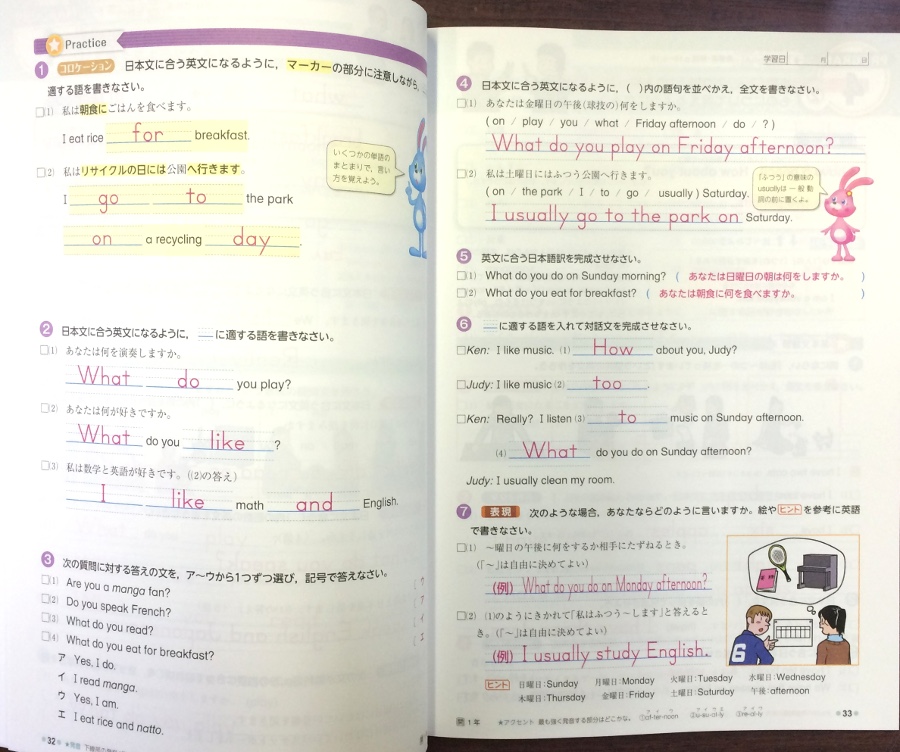 Practice
1 コロケーション 日本文に合う英文になるように，マーカーの部分に注意しながら，
適する語を書きなさい。
□(1) 私は朝食にごはんを食べます。
I eat rice for breakfast.
いくつかの単語の
まとまりで，言い
方を覚えよう。
□(2) 私はリサイクルの日には公園へ行きます。
I go to the park
on a recycling day .
2 日本文に合う英文になるように，＿に適する語を書きなさい。
□(1) あなたは何を演奏しますか。
What do you play?
□(2) あなたは何が好きですか。
What do you like ?
□(3) 私は数学と英語が好きです。((2)の答え)
I like math and English.
3 次の質問に対する答えの文を，ア〜ウから1つずつ選び，記号で答えなさい。
□(1) Are you a manga fan? ( ウ
□(2) Do you speak French? ( ア
□(3) What do you read? ( イ
□(4) What do you eat for breakfast? ( エ
ア Yes, I do.
イ I read manga.
ウ Yes, I am.
エ I eat rice and natto.
32
学習日 月 日
4 日本文に合う英文になるように，( )内の語句を並べかえ，全文を書きなさい。
□(1) あなたは金曜日の午後(球技の)何をしますか。
( on / play / you / what / Friday afternoon / do / ? )
What do you play on Friday afternoon?
□(2) 私は土曜日にはふつう公園へ行きます。
( on / the park / I / to / go / usually ) Saturday.
I usually go to the park on Saturday.
「ふつう」の意味の
usuallyは一般動
詞の前に置くよ。
5 英文に合う日本語訳を完成させなさい。
□(1) What do you do on Sunday morning? ( あなたは日曜日の朝は何をしますか。 )
□(2) What do you eat for breakfast? ( あなたは朝食に何を食べますか。 )
6 ＿に適する語を入れて対話文を完成させなさい。
□Ken: I like music. (1) How about you, Judy?
□Judy: I like music (2) too .
□Ken: Really? I listen (3) to music on Sunday afternoon.
(4) What do you do on Sunday afternoon?
Judy: I usually clean my room.
7 表現 次のような場合，あなたならどのように言いますか。絵やヒントを参考に英語
で書きなさい。
□(1) 〜曜日の午後に何をするか相手にたずねるとき。
(「〜」は自由に決めてよい)
(例) What do you do on Monday afternoon?
□(2) (1)のようにきかれて「私はふつう〜します」と答えると
き。(「〜」は自由に決めてよい)
(例) I usually study English.
6
ヒント 日曜日:Sunday 月曜日:Monday 火曜日:Tuesday 水曜日:Wednesday
木曜日:Thursday 金曜日:Friday 土曜日:Saturday 午後:afternoon
1年 ★アクセント 最も強く発音する部分はどこかな。 ①af-ter-noon ②u-su-al-ly ③re-al-ly
33